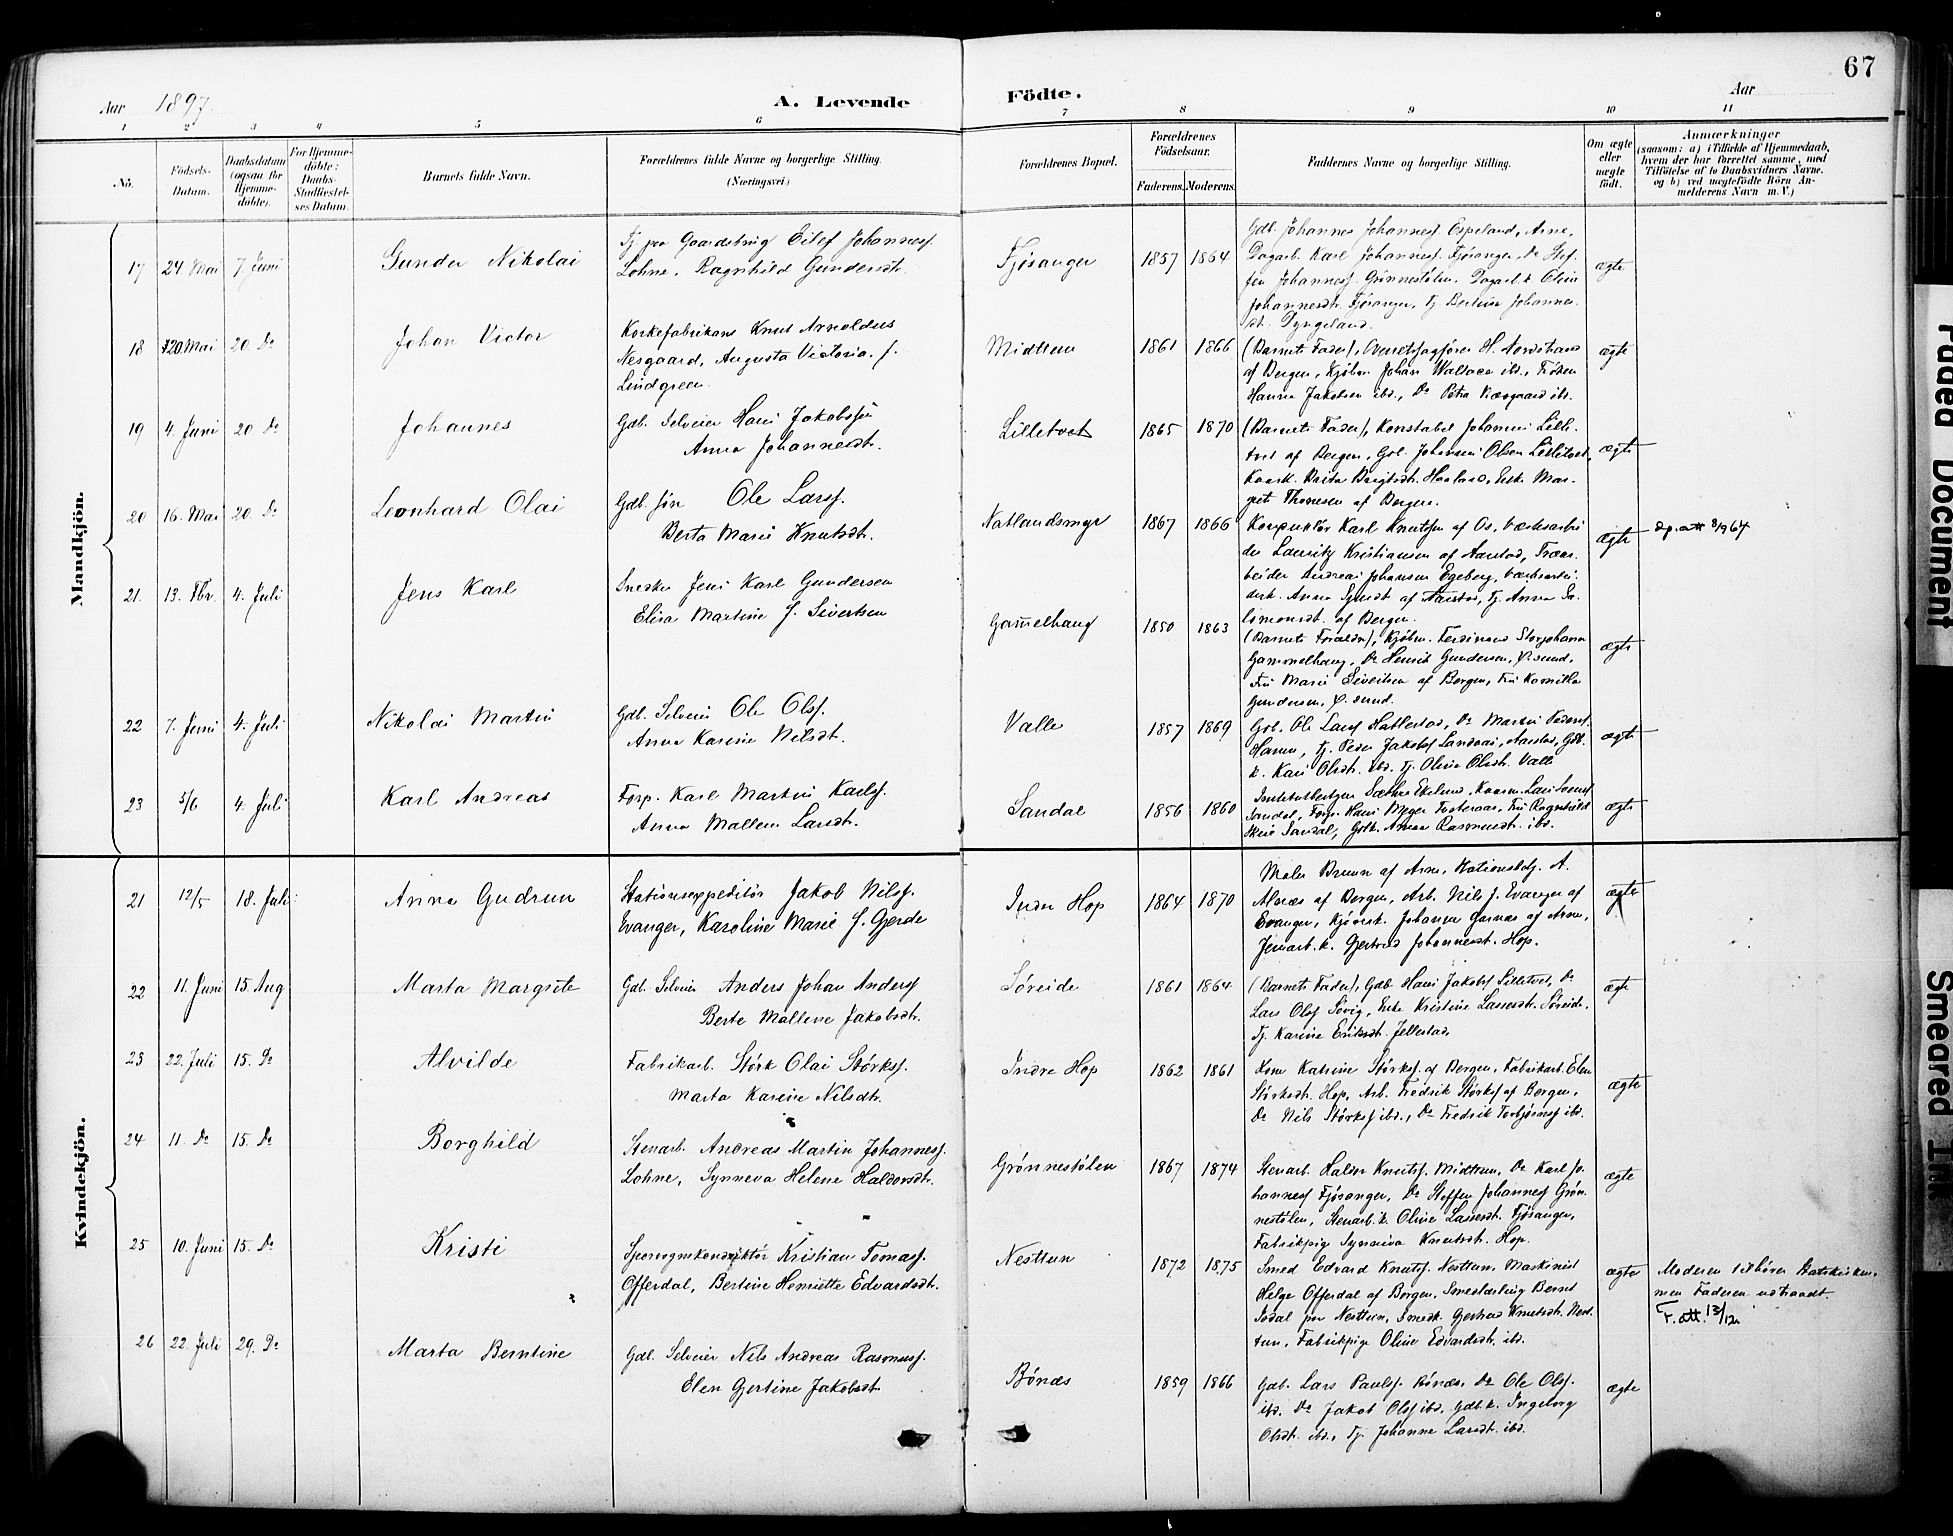 67
Aar 1897.
A. Levende Födte.
Aar
1 2 3 4 5 6 7 8 9 10 11
No.
Födsels-Datum.
Daabsdatum (ogsaa for Hjemme-döbte).
For Hjemme-döbte: Daabs-Stadfæstel-ses Datum.
Barnets fulde Navn.
Forældrenes fulde Navne og borgerlige Stilling.
(Næringsvei.)
Forældrenes Bopæl.
Forældrenes Födselsaar.
Faderens. Moderens.
Faddernes Navne og borgerlige Stilling.
Om ægte eller uægte födt.
Anmærkninger
(saasom: a) i Tilfælde af Hjemmedaab,
hvem der har forrettet samme, med
Tilföielse af to Daabsvidners Navne.
og b) ved uægtefödte Börn An-
melderens Navn m. V.)
Mandkjön.
17 24. Mai 7. Juni Gunder Nikolai
Tj. paa Gaardsbrug Eilef Johannesf.
Lohne, Ragnhild Gundersdt.
Fjøsanger 1857 1864
Gdb. Johannes Johannesf. Espeland, Arne,
Dagarb. Karl Johannesf. Fjøsanger, Do Stef-
fen Johannesf. Grønnestølen, Dagarb.k. Oline
Johannesdt. Fjøsanger, Tj. Bertine Johannes-
dt. Dyngeland.
ægte
18 20 Mai 20. Do Johan Victor
Korkefabrikant Knut Arnoldus
Nesgaard, Augusta Victoria f.
Lindgreen.
Midttun 1861 1866
(Barnets Fader), Overretssagfører H. Nordstrand
af Bergen, Kjøbm. Johan Wallace ibd., Frøken
Hanna Jakobsen ibd., Do Petra Næsgaard ibd.
ægte
19 4. Juni 20. Do Johannes
Gdb. Selveier Hans Jakobsf.
Anna Johannesdt.
Lilletvet 1865 1870
(Barnets Fader), Konstabel Johannes Lille-
tvet af Bergen, Gdb. Johannes Olsen Lilletvet,
Kaark. Brita Bengtsdt. Haaland, Enke Mar-
gret Thomesen af Bergen.
ægte
20 16. Mai 20. Do Leonhard Olai
Gdb. søn Ole Larsf.
Berta Marie Knutsdt.
Natlandsmyr 1867 1866
Karl Knutsen af Os, Værksarbei-
der Lauritz Kristiansen af Aarstad, Træar-
beider Andreas Johansen Egeberg, Værksarbei-
derk. Anna af Aarstad, Tj. Anna Sa-
lomonsdt. af Bergen.
ægte
dp.att 8/9 64
21. 13. Fbr. 4. Juli Jens Karl
Snedker Jens Karl Gundersen
Elisa Martine f. Sivertsen
Gammelhaug 1850 1863
(Barnets Forældre), Kjøbm. Ferdinand Storjohann
Gammelhaug, Do Henrik Gundersen,
Fru Marie Sivertsen af Bergen, Fru Kamilla
Gundersen,
ægte
22 7. Juni 4. Juli Nikolai Martin
Gdb. Selveier Ole Olsf.
Anna Karine Nilsdt.
Valle 1857 1869
Gdb. Ole Larsf. Hatlestad, Do Martin Pedersf.
Tj. Peder Jakobsf. Landaas, Aarstad, Gdb.
k. Kari Olsdt. ibd. Tj. Oline Olsdt. Valle
ægte
23 5/6 4. Juli Karl Andreas
Forp. Karl Martin Karlsf.
Anna Mallene Larsdt.
Sandal 1856 1860
Sæthre Ekelund,
Sandal, Forp. Hans Meyer Tveteraas, Fru Ragnhild
Skeie Sandal, Gdbk. Anna Rasmusdt. ibd.
ægte
Kvindekjön.
21 12/5 18. Juli Anna Gudrun
Stationsexpeditør Jakob Nilsf.
Evanger, Karoline Marie f. Gjerde
Indre Hop 1864 1870
Maler Bruun af Arne, Stationsbetj. A.
Alvær af Bergen, Arb. Nils J. Evanger af
Evanger, Johanne Garnæs af Arne,
Jernarb.k. Gjertrud Johannesdt. Hop.
ægte
22 11. Juni 15. Aug Marta Margrete
Gdb. Selveier Anders Johan Andersf.
Berte Mallene Jakobsdt.
Søreide 1861 1864
(Barnets Fader), Gdb. Hans Jakobsf. Lilletvet, Do
Lars Olsf. Sørvig, Enke Kristine Larsesdt. Søreide,
Tj. Karine Eriksdt. Jellestad.
ægte
23 22. Juli 15. Do Alvilde
Fabrikarb. Størk Olai Størksf.
Marta Karine Nilsdt.
Indre Hop 1862 1861
Kone Katrine Størksf. af Bergen, Fabrikarb. Elen
Størksdt. Hop, Arb. Fredrik Størksf. af Bergen,
Do Nils Størksf. ibd., Do Fredrik Torbjørnsf. ibd.
ægte
24 11. Do 15. Do Borghild
Stenarb. Andreas Martin Johannesf.
Lohne, Synneva Helene Haldorsdt.
Grønnestølen 1867 1874
Stenarb. Haldor Knutsf. Midttun, Do Karl Jo-
hannesf. Fjøsanger, Do Steffen Johannesf. Grøn-
nestølen, Stenarb.k. Oline Larsesdt. Fjøsanger,
Fabrikpig Synneva Knutsdt. Hop.
ægte
25 10. Juni 15. Do Kristi
Sporvognskonduktør Kristian Tomasf.
Offerdal, Bertine Henriette Edvardsdt.
Nesttun 1872 1875
Smed Edvard Knutsf. Nesttun, Maskinist
Helge Offerdal af Bergen, Smedlærling Bernt
Isdal paa Nesttun, Smedk. Gjertrud Knutsdt. Nest-
tun, Fabrikpige Oline Edvardsdt. ibd.
ægte
Moderen tilhører Statskirken,
men Faderen udtraadt.
F. att. 13/12
26 22. Juli 29. Do Marta Berntine
Gdb. Selveier Nils Andreas Rasmusf.
Elen Gjertine Jakobsdt.
Bønæs 1859 1866
Gdb. Lars Paulsf. Bønæs, Do Ole Olsf.
ibd. Do Jakob Olsf. ibd. Gdb.k. Ingeborg
Olsdt. ibd., Tj. Johanne Larsdt. ibd.
ægte
Faded Document
Smeared Ink